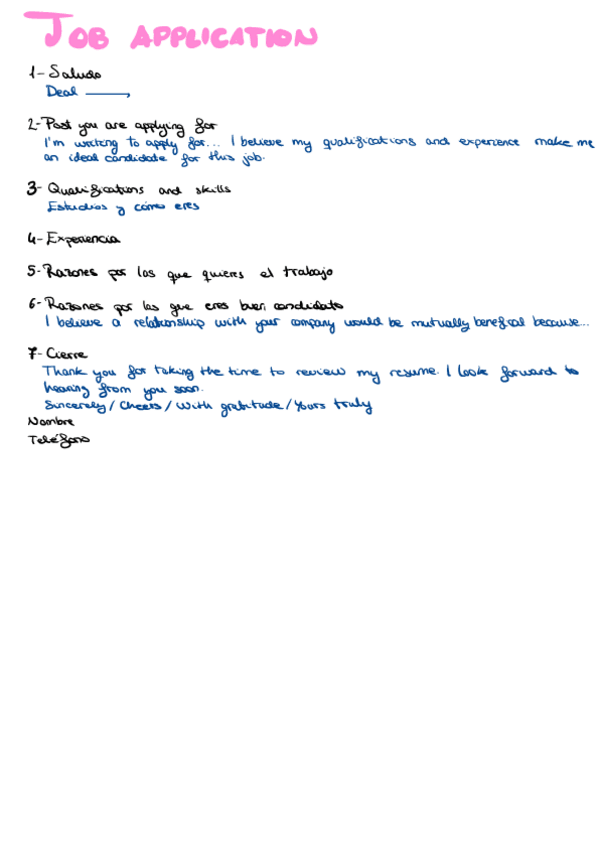 JOB APPLICATION
1- Saludo
Dear ———,
2- Post you are applying for
I'm writing to apply for... I believe my qualifications and experience make me
an ideal candidate for this job.
3- Qualifications and skills
Estudios y cómo eres
4- Experiencia
5- Razones por las que quieres el trabajo
6- Razones por las que eres buen candidato
I believe a relationship with your company would be mutually benefical because...
7- Cierre
Thank you for taking the time to review my resume. I look forward to
hearing from you soon.
Sincerely / Cheers / With gratitude / Yours truly
Nombre
Teléfono